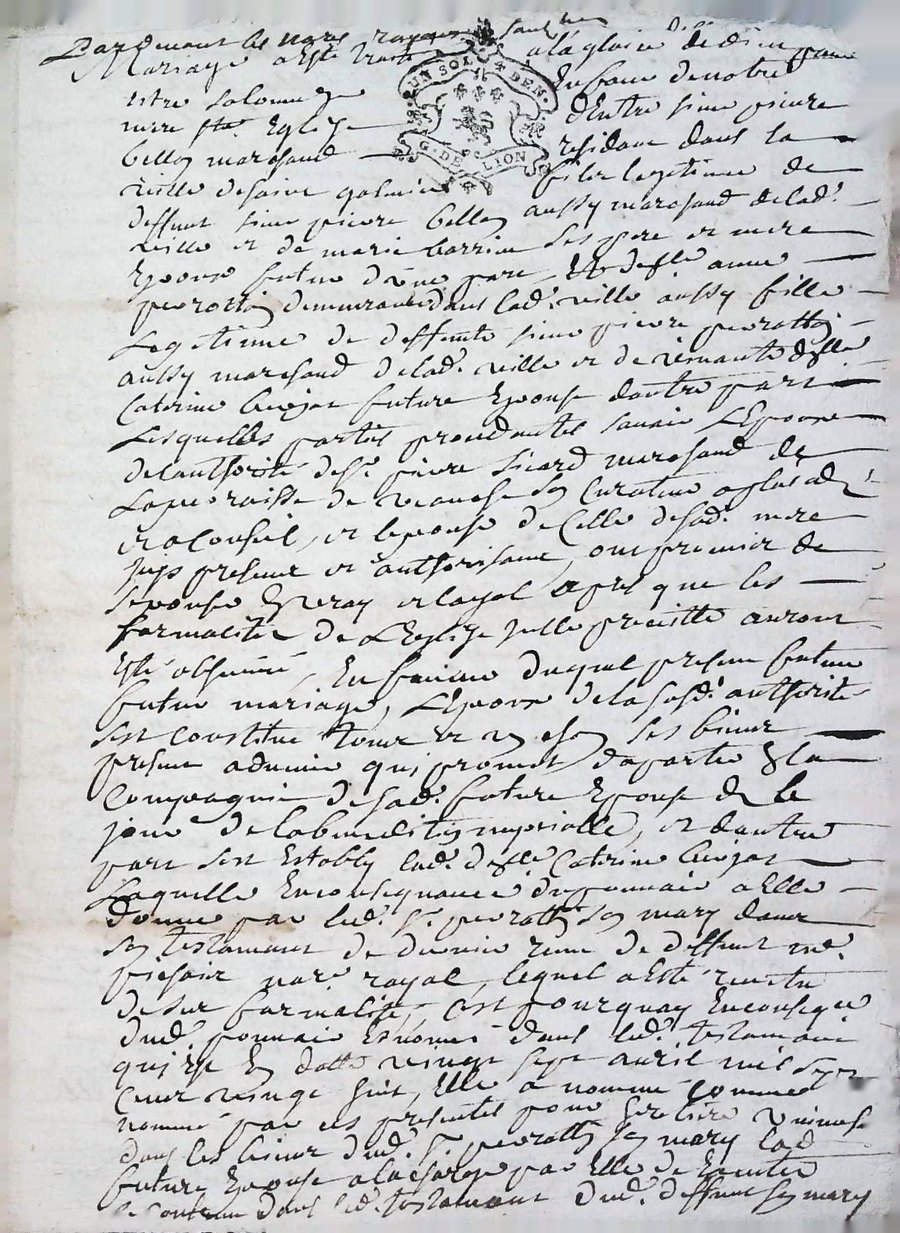 Pardevant les nores royaux soubz nes
Mariage a esté traité a la gloire de dieu
UN SOL 4 DEN.
G. DE LION
entre solomnize en face de notre
mere ste Eglize d'Entre sieur pierre
bellon marchand residant dans la
ville de saint galmier fils legitime de
deffunt sieur pierre bellon aussy marchand de lad.
ville et de marie barrieu ses pere et mere
Epoux futur d'une part, Et dlle anne
peyrotton demeurante dans lad. ville aussy fille
Legitime de deffunt sieur pierre peyrotton
aussy marchand de lad. ville et de vivante dlle
Caterine future Epouse dautre part
Lesquelles parties procedantes savoir L'Epoux
de l'authorité de sr. pierre sicard marchand de
La de son Curateur
et a Conseil, et l'epouse de Celle de sad. mere
icy presente et authorisante, ont promis de
s'epouser Eglize et loyal apres que les
formalités de L'Eglize icelle auront
Esté observé, En faveur duquel present futur
futur mariage, L'Epoux de la susd. authorité
s'est constitué tous et un chacun ses biens
presens advenir qui promet d'aporter En la
Compagnie de sad. future Epouse des le
jour de la benediction nuptialle, et d'autre
part s'est Establÿ lad. dlle Caterine
Laquelle En consequance du pouvoir a Elle
donné par led. sr. peyrotton son mary dans
son testament de dernier de deffunt me.
nore. royal, lequel a esté
de sur formalisé, c'est pourquoy En conseqce
dud. pouvoir Enoncé dans led. testament
qui est En datte vingt sept avril mil sept
Cent vingt huit, Elle a nommé comme
nomme par ces presentes pour heritiere universe
dans les biens dud. sr. peyrotton son mary lad
future Epouse a la charge par Elle de Executer
le contenu dans led. testament dud. deffunt son mary